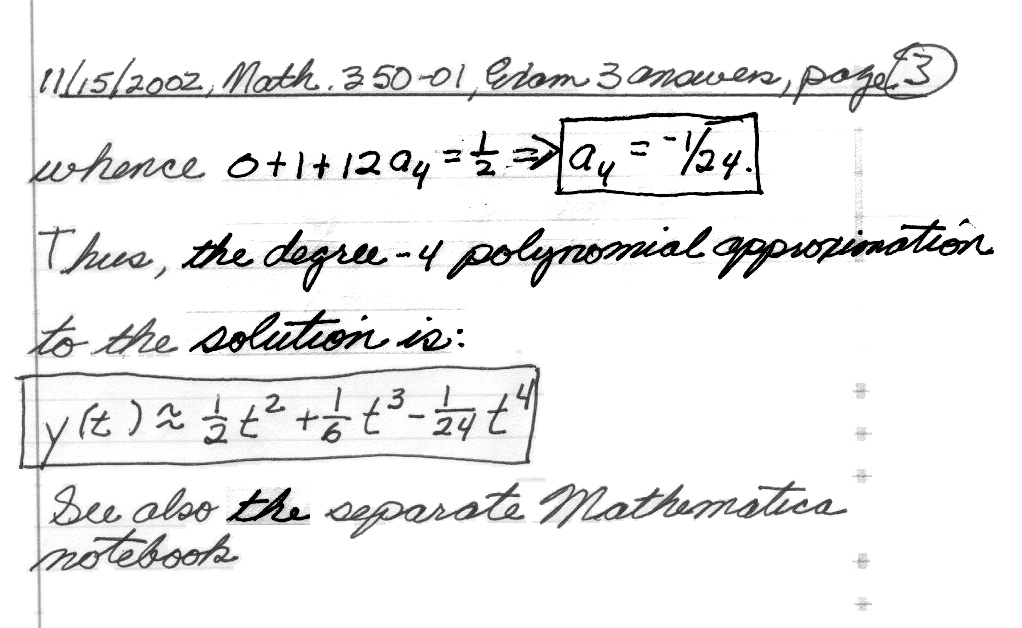 11/15/2002, Math. 350-01, Exam 3 answers, page 3
whence 0+1+12a₄ = 1/2 ⇒ a₄ = -1/24.
Thus, the degree-4 polynomial approximation
to the solution is:
y(t) ≈ 1/2 t² + 1/6 t³ - 1/24 t⁴
See also the separate Mathematica
notebook